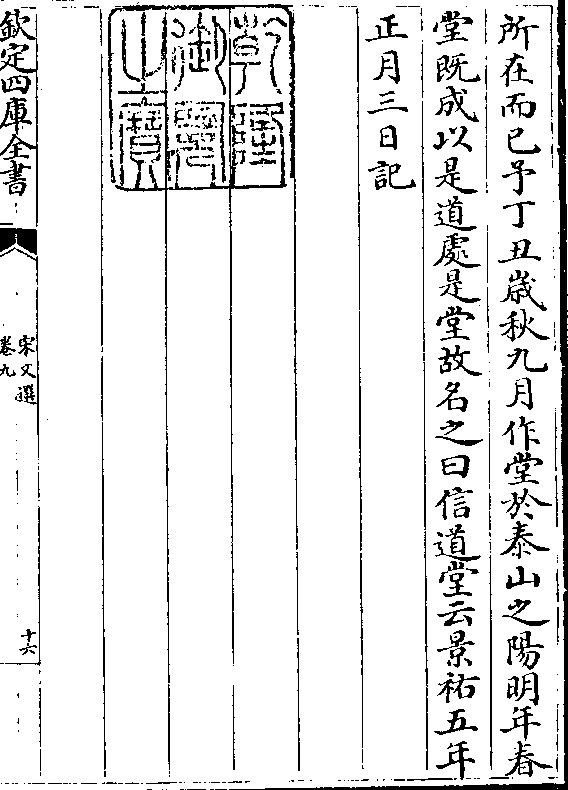 所在而已予丁丑歳秋九月作堂於泰山之陽明年春
堂既成以是道處是堂故名之曰信道堂云景祐五年
正月三日記
乾隆
御覽
之寶
欽定四庫全書
宋文選
卷九
十六